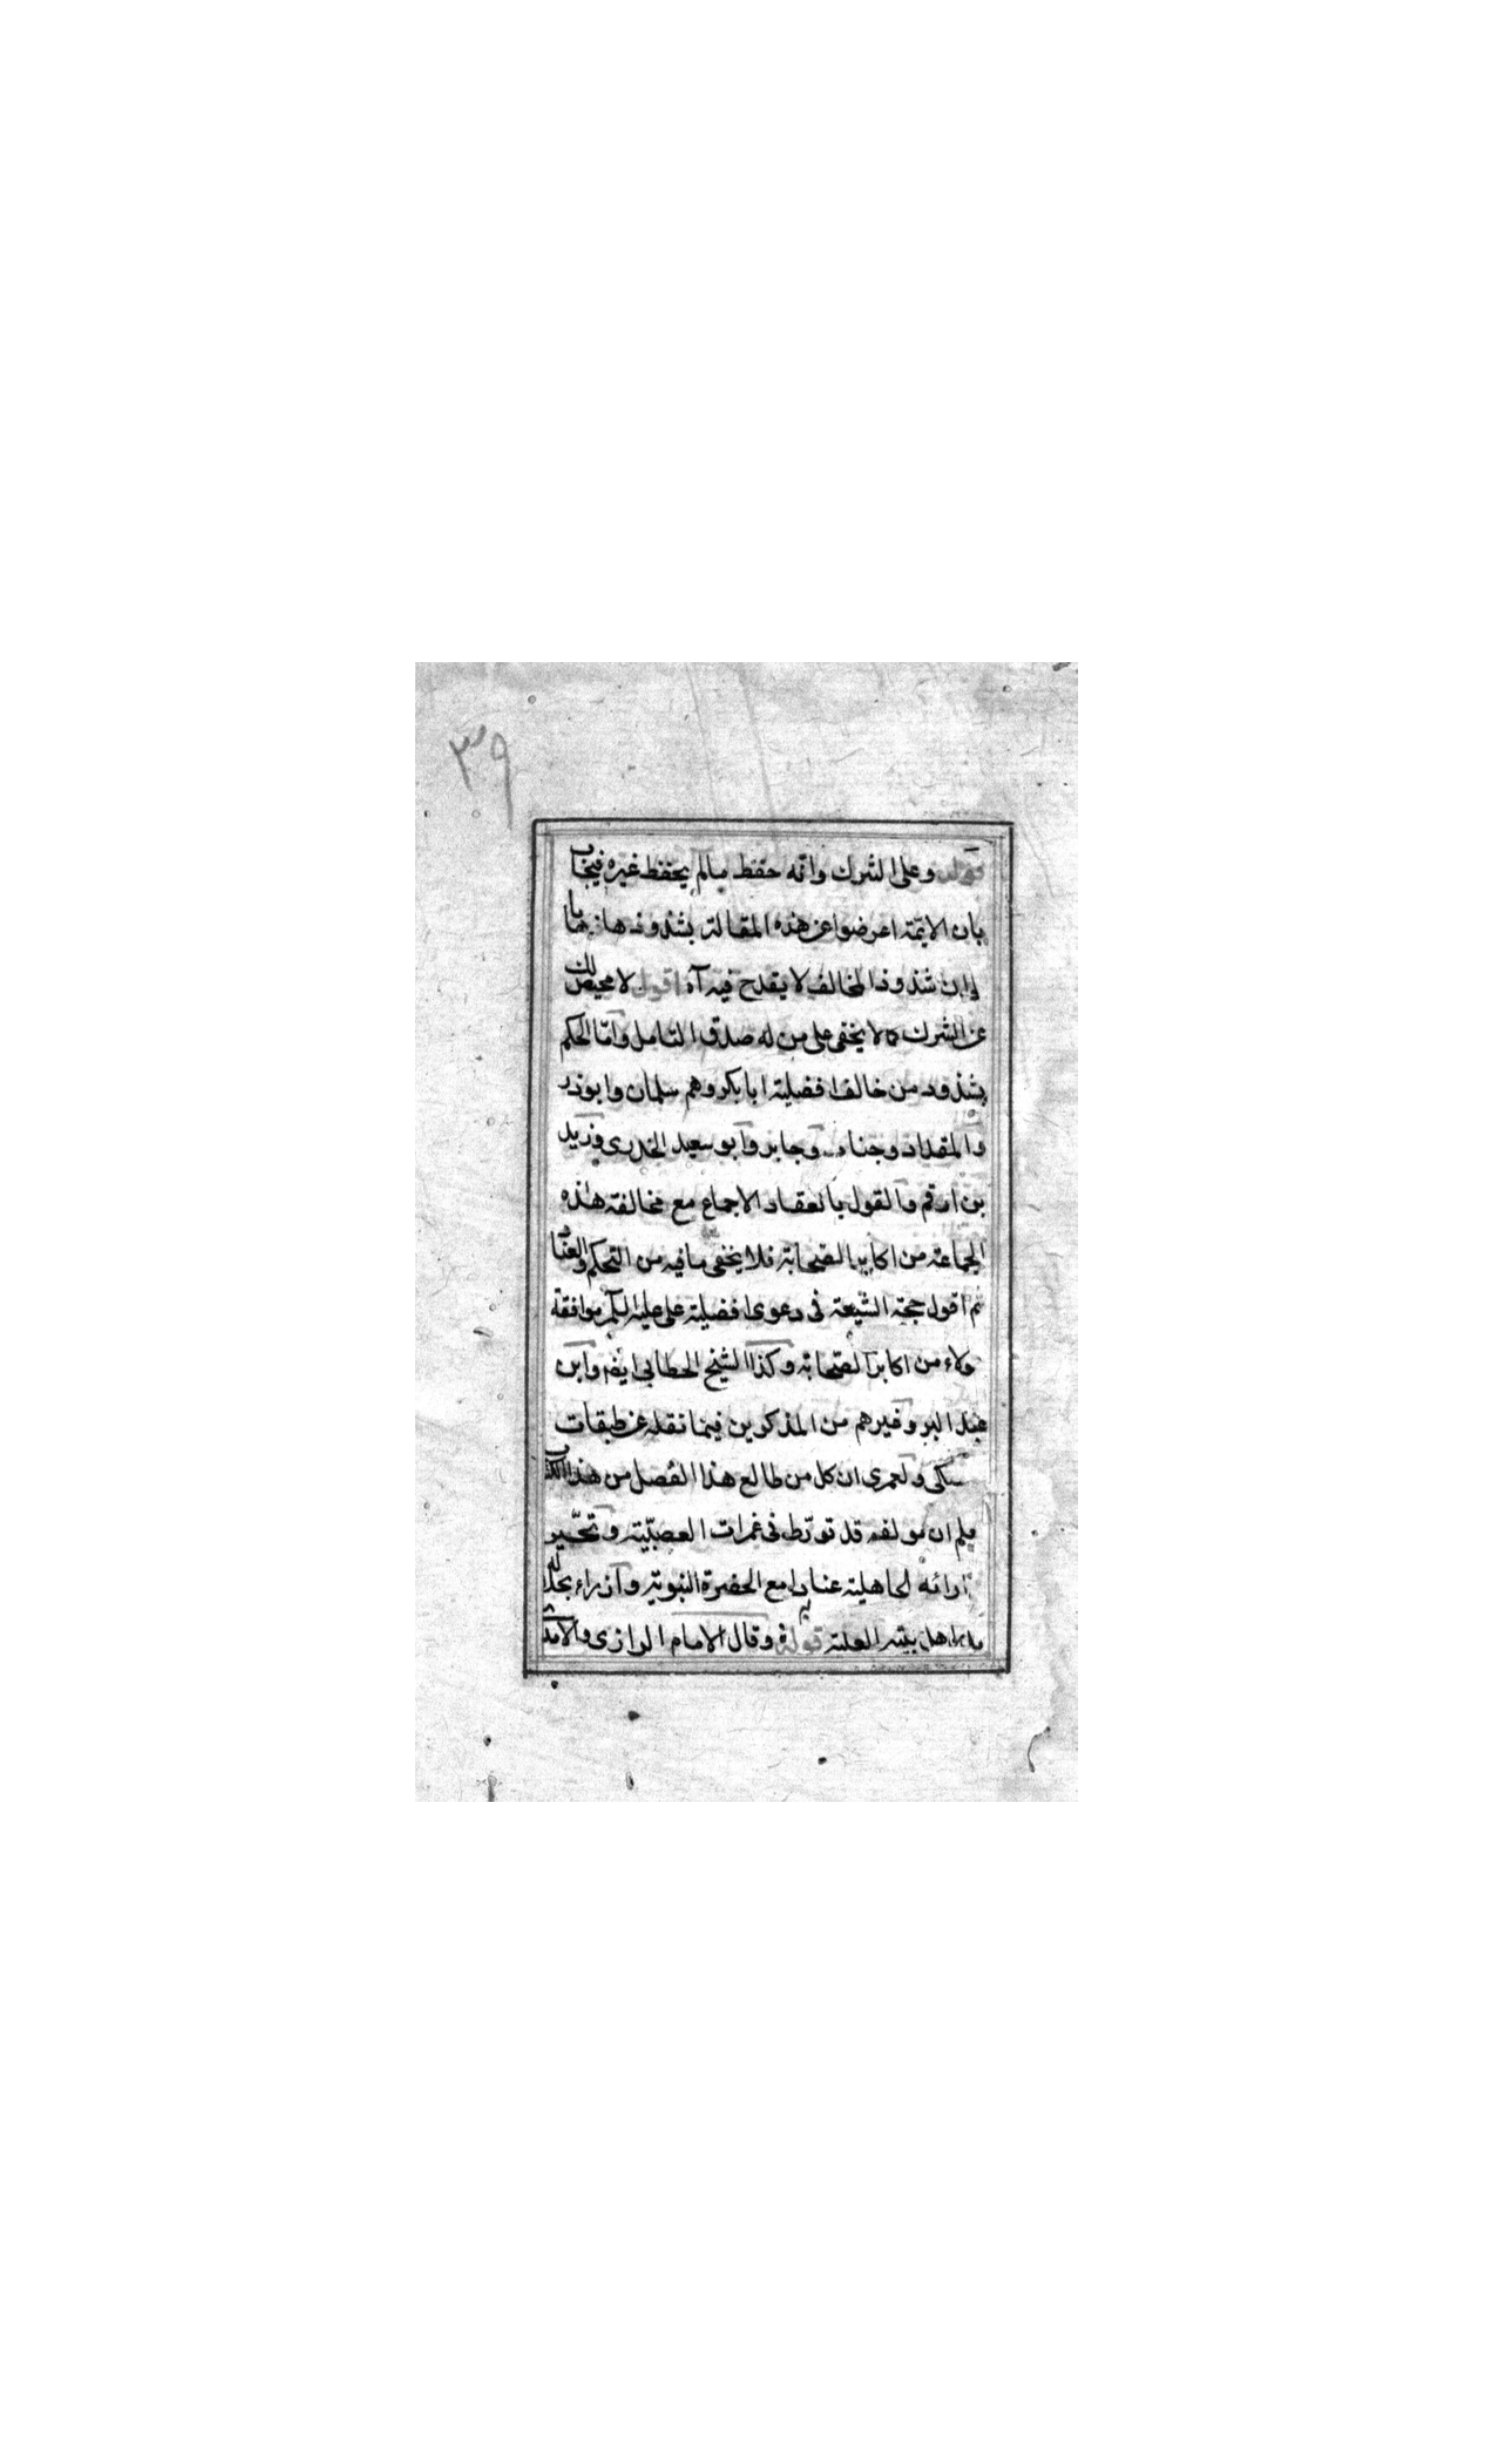 ٣٩
قوله وعلى الشرك وانّه حفظ مالم يحفظ غيره فيجاب
بان الايمّة اعرضوا عن هذه المقالة بشذوذها
وان شذوذ المخالف لا يقدح فيه آه اقول لا محيص لك
عن الشرك كالا يخفى على من له صدق التامل وامّا الحكم
بشذوذ من خالف افضلية ابا بكر وهم سلمان وابوذر
والمقداد وجناب وجابر وابو سعيد الخدرى وزيد
بن ارقم والقول بانعقاد الاجماع مع مخالفة هذه
الجماعة من اكابر الصّحابة فلا يخفى ما فيه من التحكم والعناد
ثم اقول حجة الشيعة فى دعوى افضلية على عليه السلم موافقة
هولاء من اكابر الصّحابة وكذا الشيخ الخطابى ايضا وابن
عبد البر وغيرهم من المذكورين فيما نقله عن طبقات
سبكى ولعمرى ان كل من طالع هذا الفصل من هذا الكتاب
علم ان مولفه قد تورّط فى غمرات العصبّية وتحيّر
آرائه لجاهلية عنادا مع الحضرة النبوية وازراء بجلاله
اهل بيته العلية قوله وقال الامام الرازى والآمدى